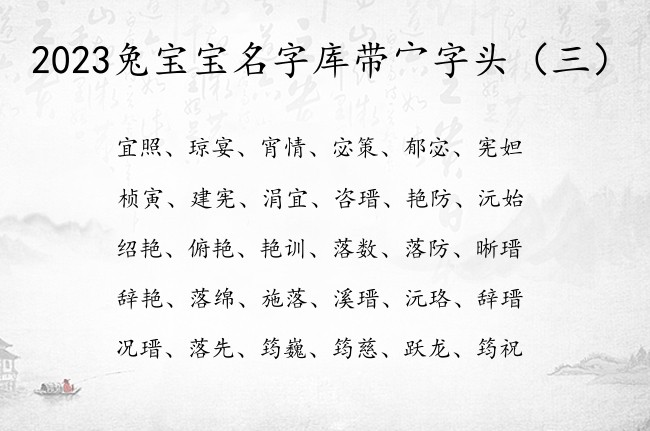 2023兔宝宝名字库带宀字头（三）
宜照、琼宴、宵情、宓策、郁宓、宪妲
桢寅、建宪、涓宜、咨瑨、艳防、沅始
绍艳、俯艳、艳训、落数、落防、晰瑨
辞艳、落绵、施落、溪瑨、沅珞、辞瑨
况瑨、落先、筠巍、筠慈、跃龙、筠祝